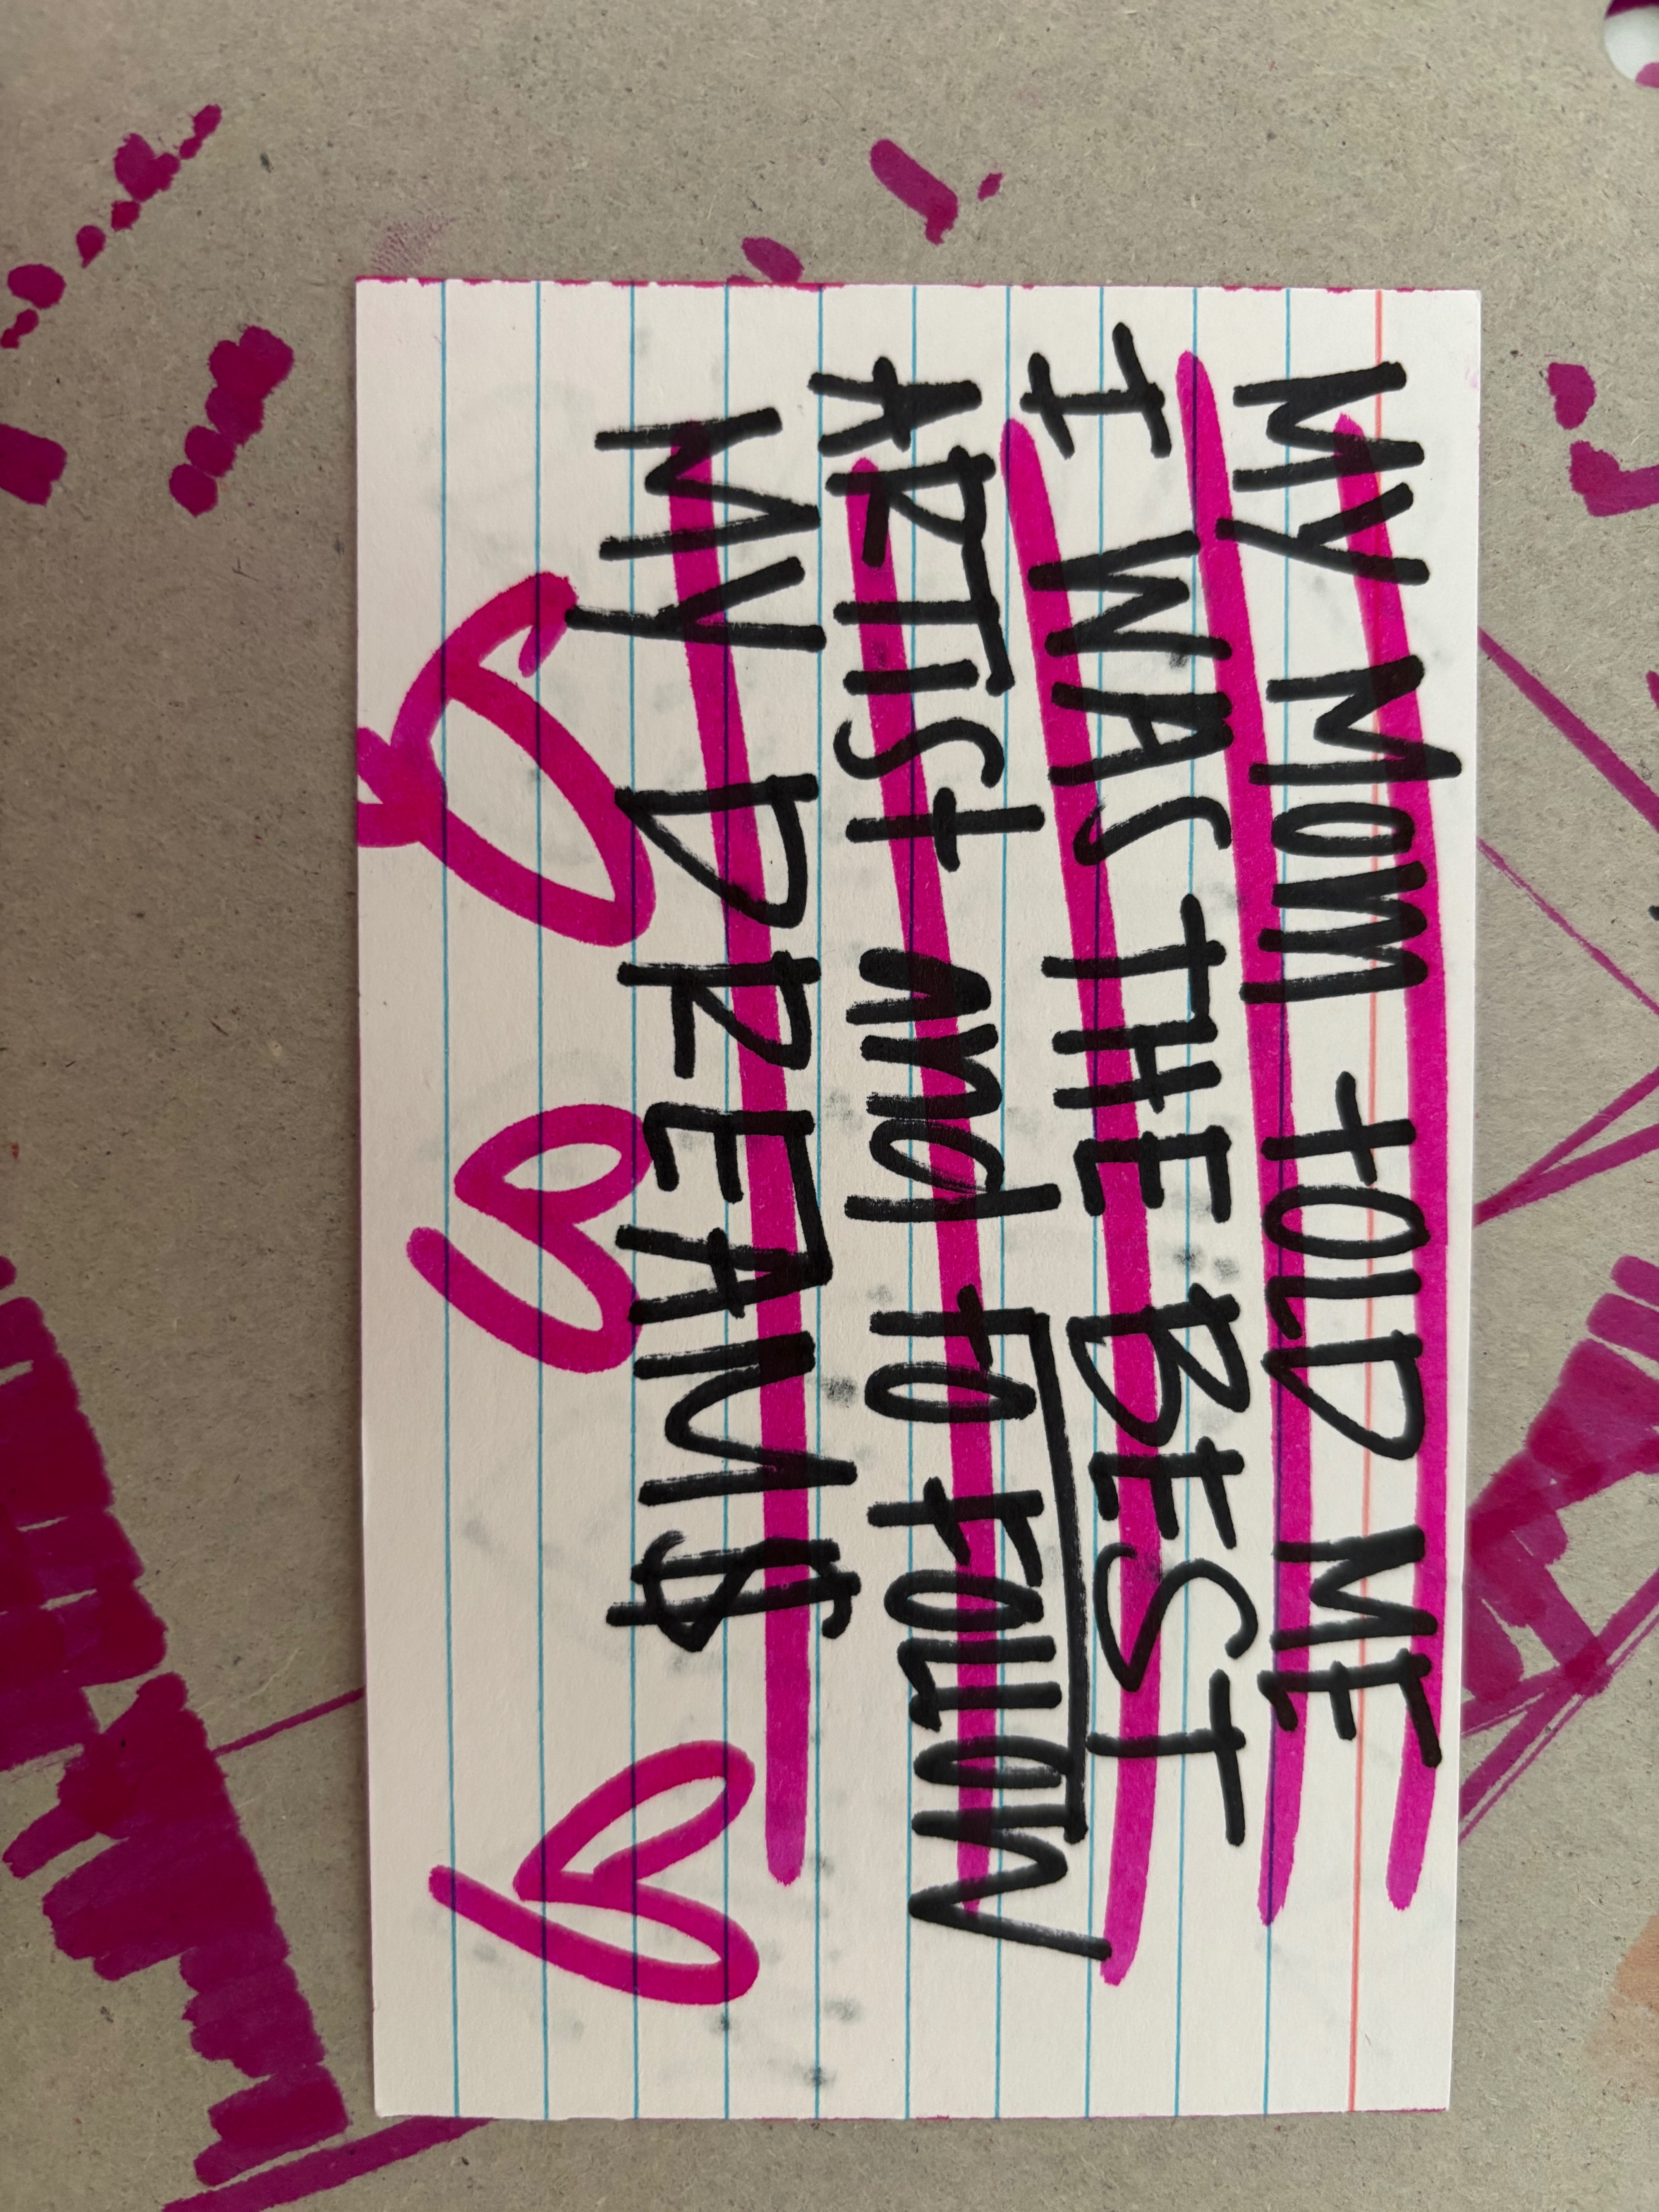 MY MOM tOLD ME
I WAS THE BEST
ARTISt AND TO FOLLOW
MY DREAM$